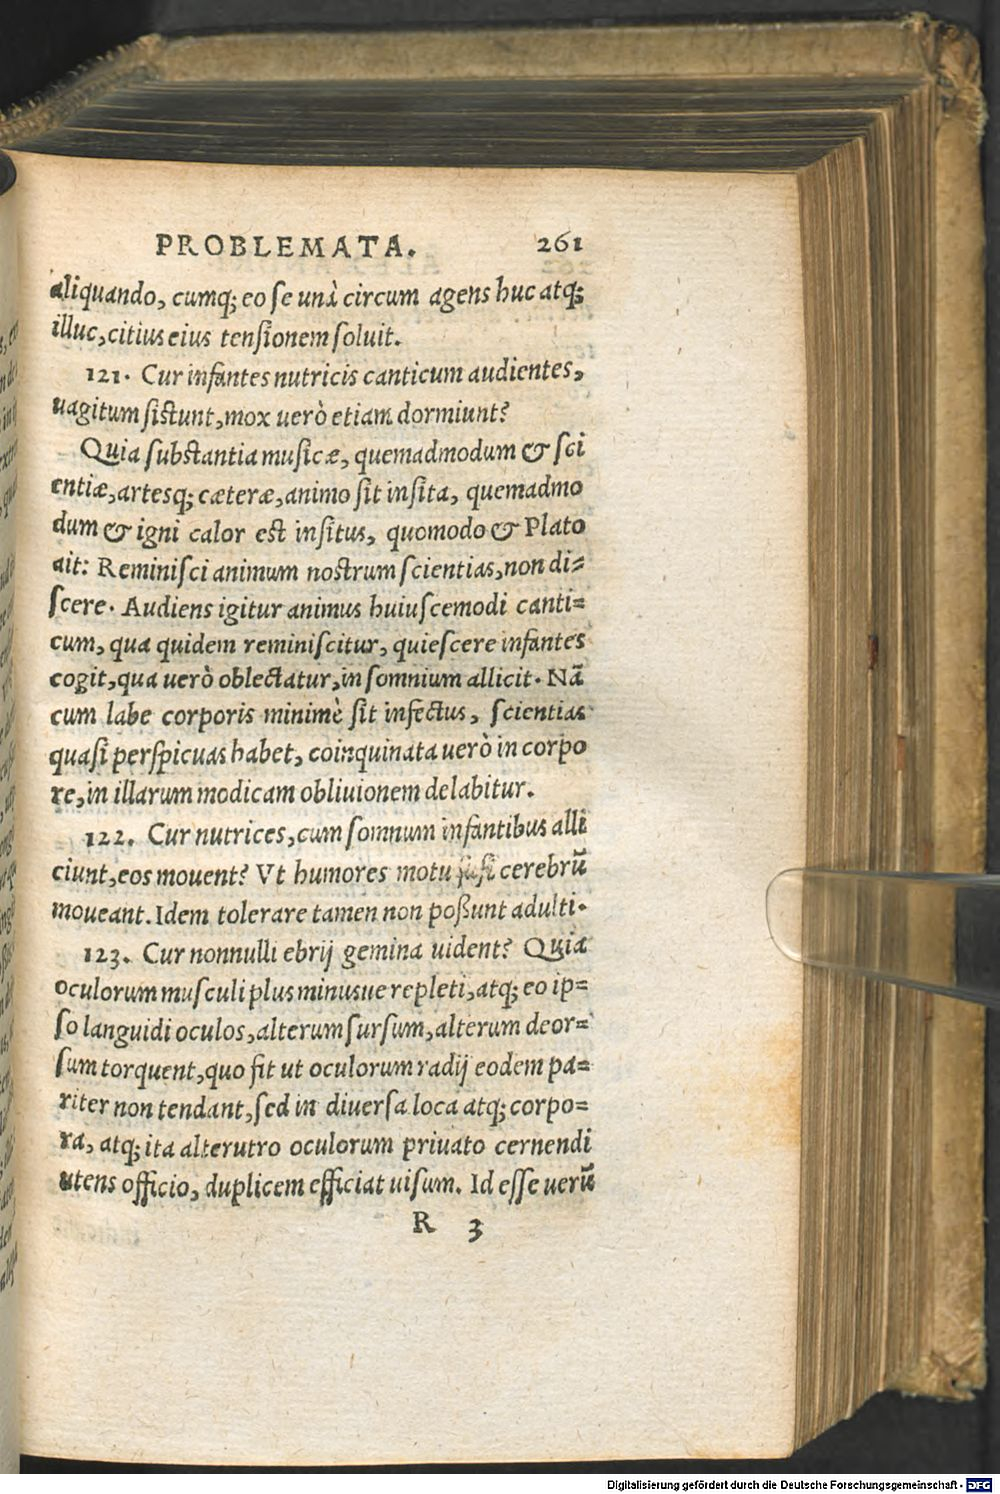 PROBLEMATA. 261
aliquando, cumq; eo se unà circum agens huc atq;
illuc, citius eius tensionem soluit.
121. Cur infantes nutricis canticum audientes,
uagitum sistunt, mox uerò etiam dormiunt?
Quia substantia musicæ, quemadmodum & sci
entiæ, artesq; cæteræ, animo sit insita, quemadmo
dum & igni calor est insitus, quomodo & Plato
ait: Reminisci animum nostrum scientias, non di=
scere. Audiens igitur animus huiuscemodi canti=
cum, qua quidem reminiscitur, quiescere infantes
cogit, qua uerò oblectatur, in somnium allicit. Nã
cum labe corporis minimè sit infectus, scientias
quasi perspicuas habet, coinquinata uerò in corpo
re, in illarum modicam obliuionem delabitur.
122. Cur nutrices, cum somnum infantibus alli
ciunt, eos mouent? Vt humores motu fusi cerebrũ
moueant. Idem tolerare tamen non possunt adulti.
123. Cur nonnulli ebrij gemina uident? Quia
oculorum musculi plus minusue repleti, atq; eo ip=
so languidi oculos, alterum sursum, alterum deor=
sum torquent, quo fit ut oculorum radij eodem pa=
riter non tendant, sed in diuersa loca atq; corpo=
ra, atq; ita alterutro oculorum priuato cernendi
utens officio, duplicem efficiat uisum. Id esse uerũ
R 3
Digitalisierung gefördert durch die Deutsche Forschungsgemeinschaft - DFG